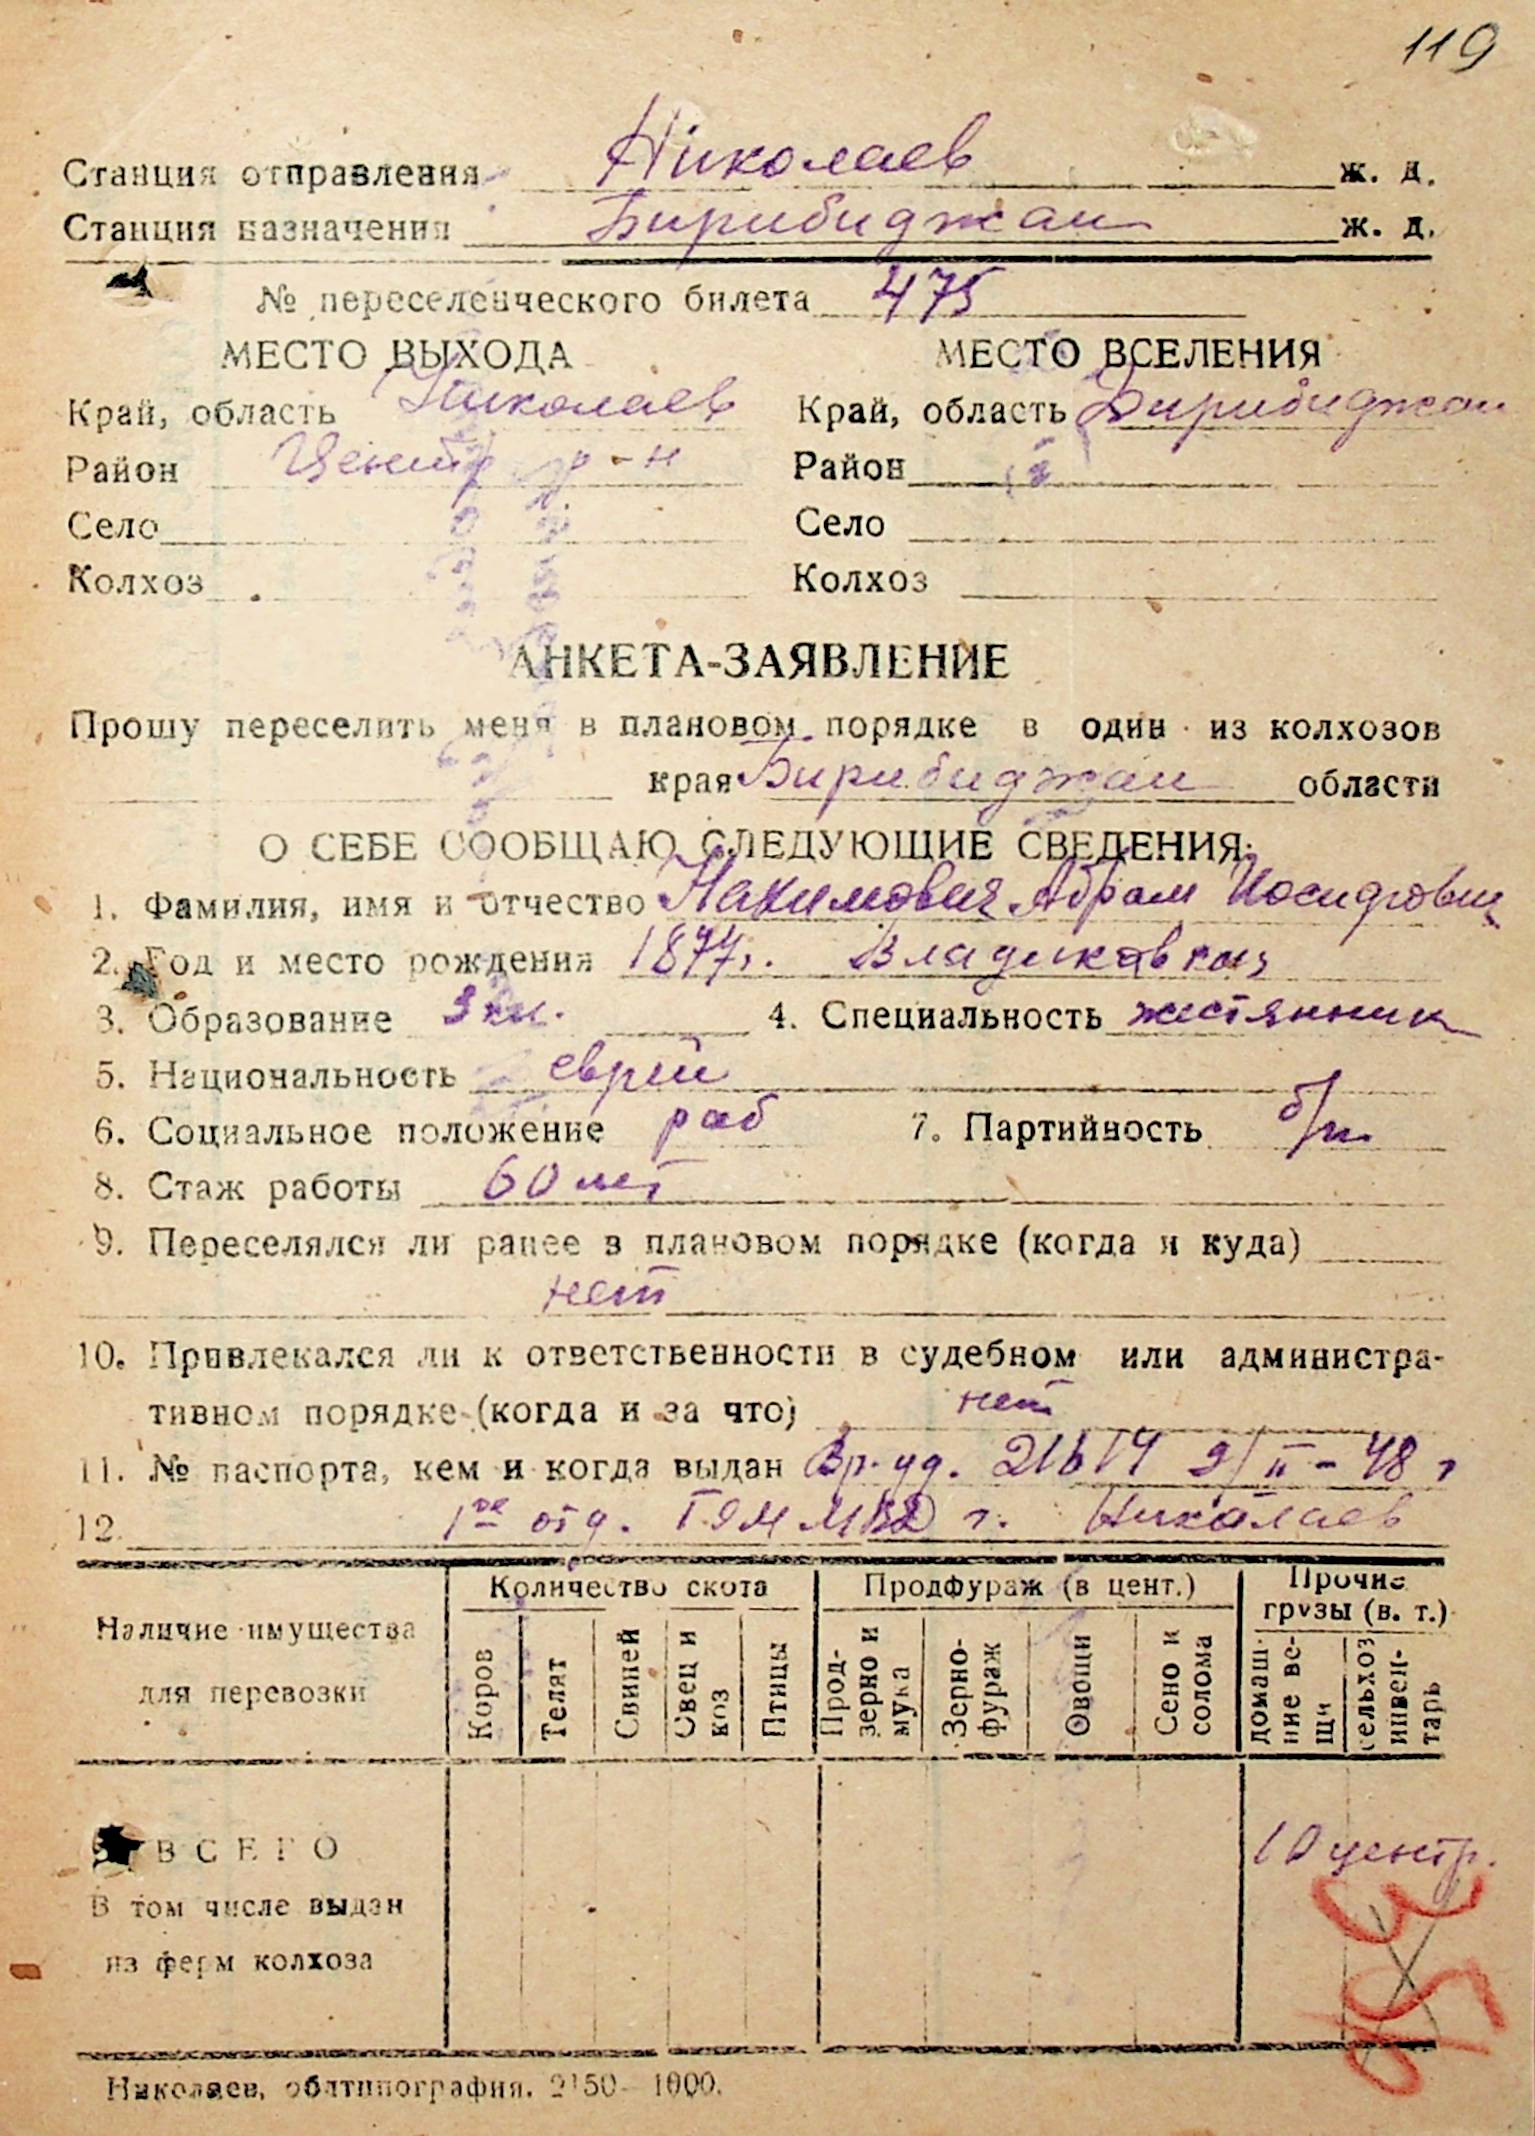 119
Станция отправления Николаев ж. д.
Станция назначения Бирибиджан ж. д.
№ переселенческого билета 475
МЕСТО ВЫХОДА МЕСТО ВСЕЛЕНИЯ
Край, область Николаев Край, область Бирибиджан
Район Центр р-н Район
Село Село
Колхоз Колхоз
АНКЕТА-ЗАЯВЛЕНИЕ
Прошу переселить меня в плановом порядке в один из колхозов
края Бирибиджан области
О СЕБЕ СООБЩАЮ СЛЕДУЮЩИЕ СВЕДЕНИЯ:
1. Фамилия, имя и отчество Нахимович Абрам Иосифович
2. Год и место рождения 1877г. Владикавказ
3. Образование 3 кл. 4. Специальность жестянник
5. Национальность еврей
6. Социальное положение раб 7. Партийность б/п.
8. Стаж работы 60 лет
9. Переселялся ли ранее в плановом порядке (когда и куда)
нет
10. Привлекался ли к ответственности в судебном или администра-
тивном порядке (когда и за что) нет
11. № паспорта, кем и когда выдан Вр. уд. 9/II-48 г
12. 1ое отд. ГОМ МВД г. Николаев
Наличие имущества для перевозки
Количество скота Продфураж (в цент.) Прочие грузы (в. т.)
Коров Телят Свиней Овец и коз Птицы Прод-зерно и мука Зерно-фураж Овощи Сено и солома домаш-ние ве-щи сельхоз инвен-тарь
ВСЕГО 10 центр.
В том числе выдан
из ферм колхоза
Николаев, облтипография. 2150— 1000.